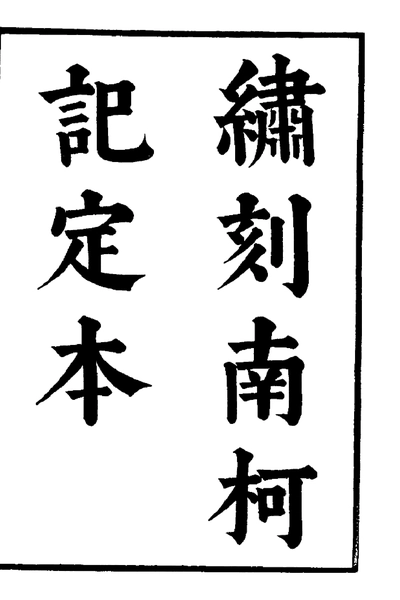 繡刻南柯
記定本